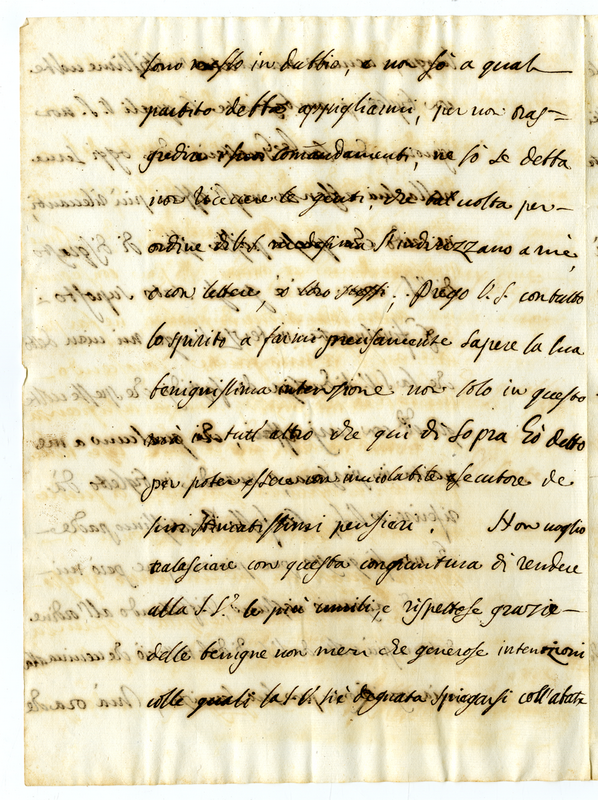 sono messo in dubbio, e non sò a qual
partito debba appigliarmi, per non tras=
gredire i suoi comandamenti, ne sò se debba
non ricevere le genti, che tal volta per
ordine di lei medesima s'indirizzano a mè,
o con lettere, o loro stessi; Prego V. S. con tutto
lo spirito a farmi precisamente sapere la sua
benignissima intenzione non solo in questo
mà in tutt'altro che quì di sopra hò detto
per poter essere un inviolabile esecutore de
suoi stimatissimi pensieri. Non voglio
tralasciare con questa congiuntura di rendere
alla S. V. le più umili, e rispettose grazie
delle benigne non men che generose intenzioni
colle quali la S. V. si è degnata spiegarsi coll'abate